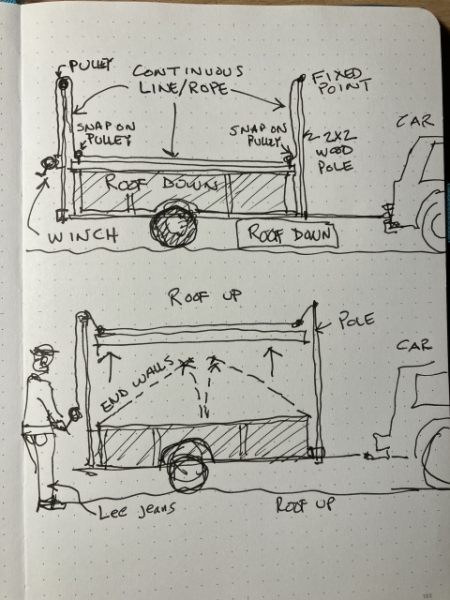 PULLEY
CONTINUOUS
LINE/ROPE
FIXED
POINT
CAR
SNAP ON
PULLEY
SNAP ON
PULLEY
2X2
WOOD
POLE
ROOF DOWN
WINCH
ROOF DOWN
ROOF UP
POLE
CAR
END WALLS
Lee jeans
ROOF UP